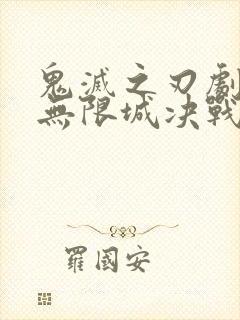 鬼滅之刃劇
無限城決戰
羅國安